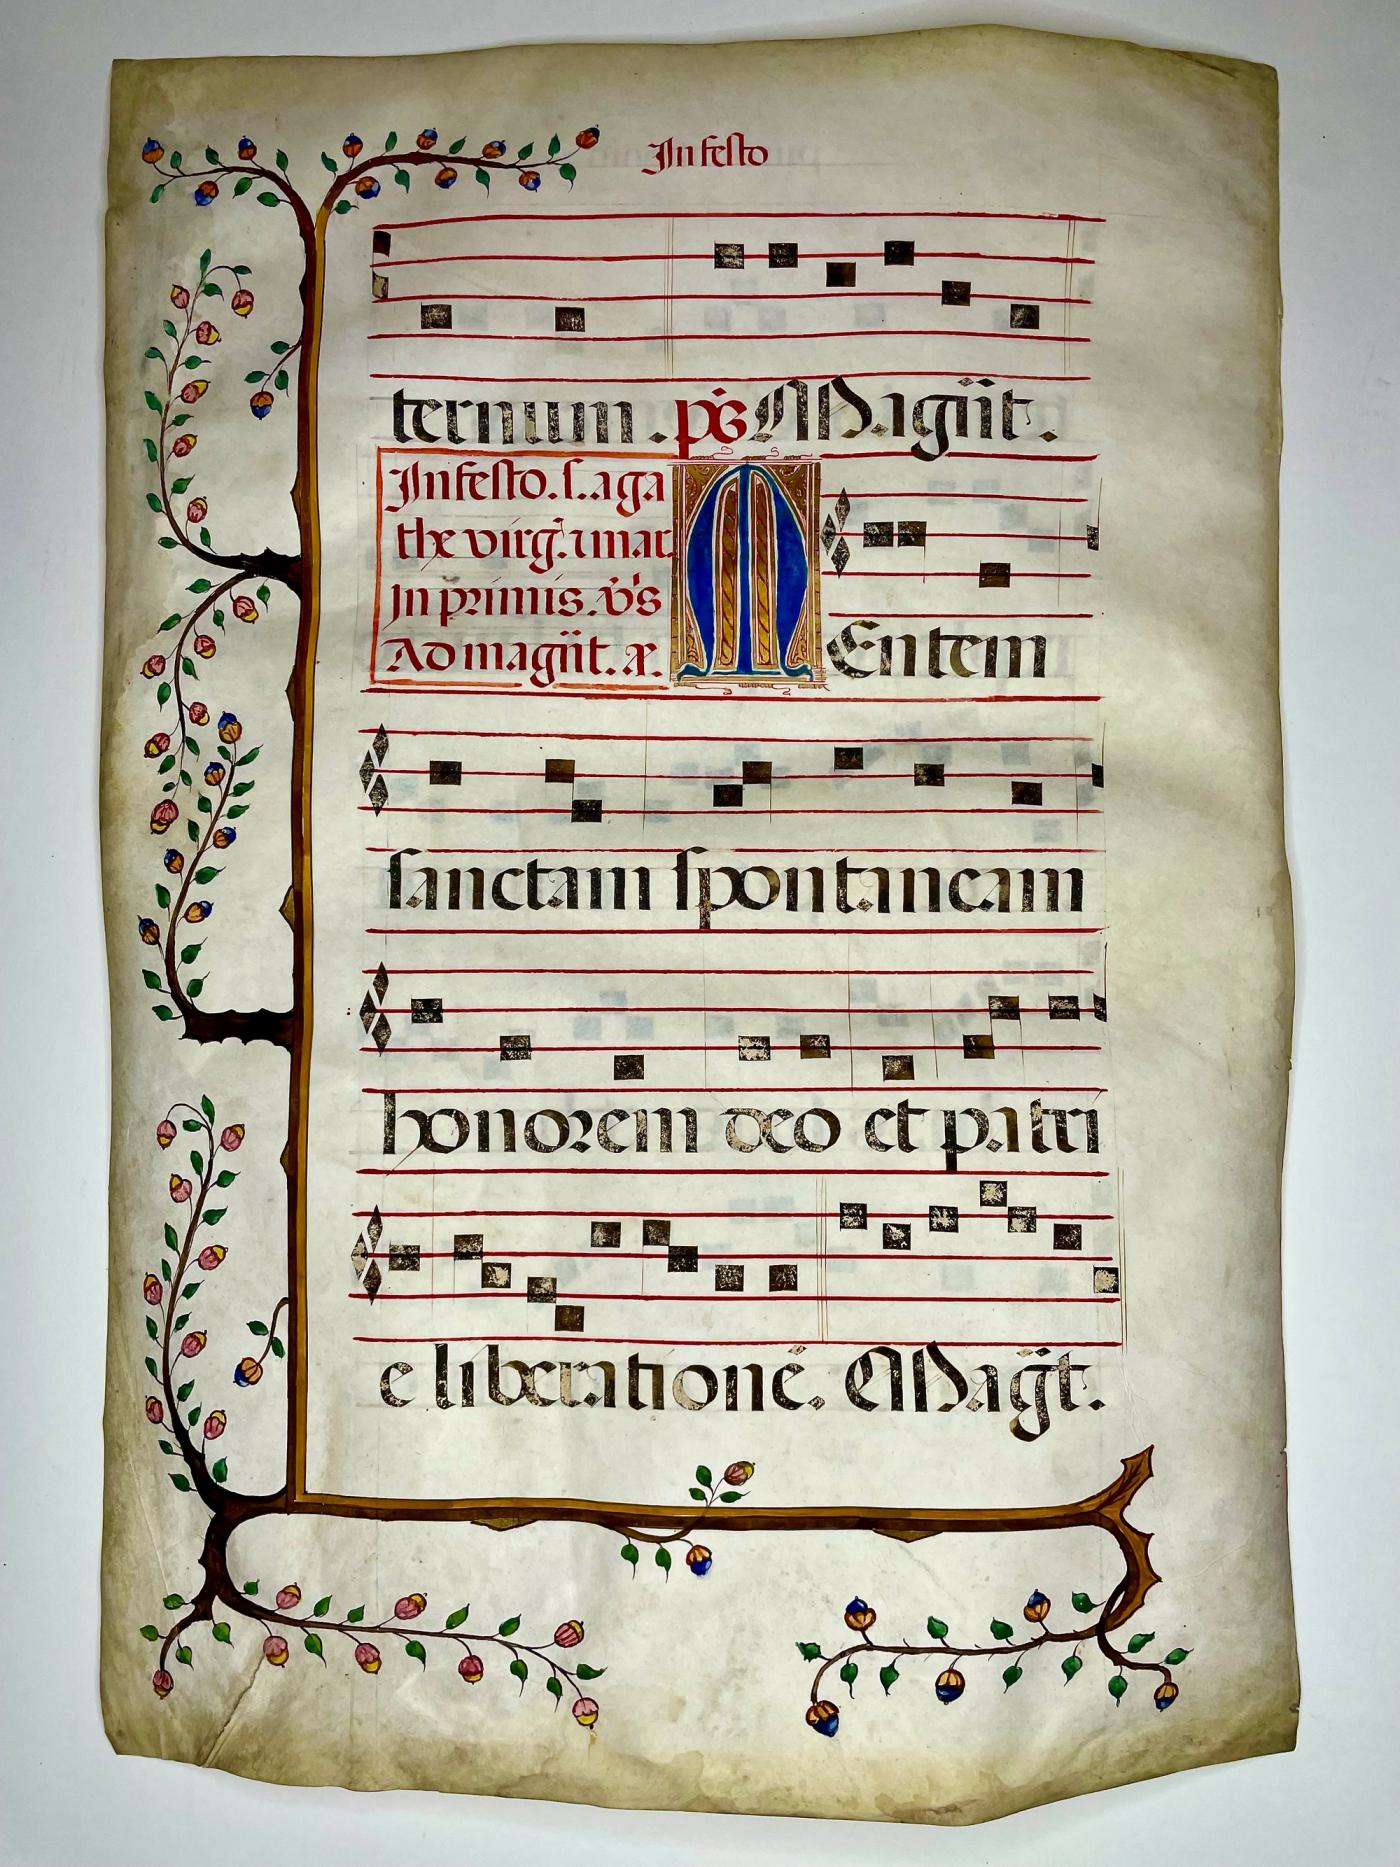 In festo
ternum. ps̄ Magn̄it.
In festo. s. aga
the virḡ. ⁊ mar.
In primis. v̄s
Ad magn̄it. añ.
MEntem
sanctam spontaneam
honorem deo et patri
e liberationē. Magn̄t.